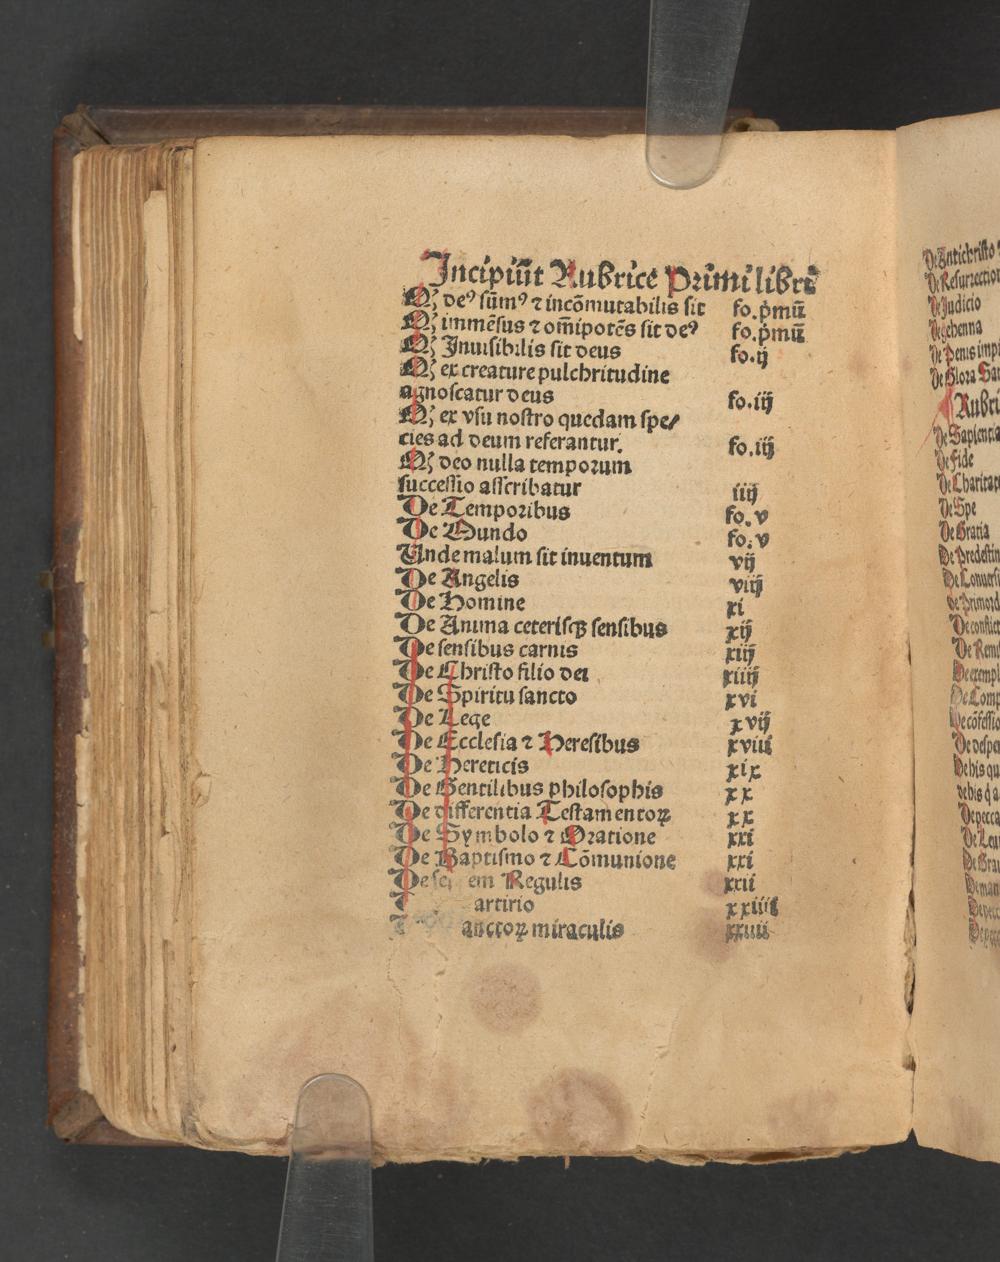 Incipiūt Rubrice Primi libri
Qꝫ deꝰ sūmꝰ ⁊ incōmutabilis sit fo.p̄mū
Qꝫ immēsus ⁊ om̄ipotēs sit deꝰ fo.p̄mū
Qꝫ Inuisibilis sit deus fo.ij
Qꝫ ex creature pulchritudine
agnoscatur deus fo.iij
Qꝫ ex vsu nostro quedam spe/
cies ad deum referantur. fo.iij
Qꝫ deo nulla temporum
successio asscribatur iiij
De Temporibus fo.v
De Mundo fo.v
Unde malum sit inuentum vij
De Angelis viij
De Homine xi
De Anima ceterisqꝫ sensibus xij
De sensibus carnis xiij
De Christo filio dei xiiij
De Spiritu sancto xvi
De Lege xvij
De Ecclesia ⁊ Heresibus xviii
De Hereticis xix
De Gentilibus philosophis xx
De differentia Testamentoꝝ xx
De Symbolo ⁊ Oratione xxi
De Baptismo ⁊ Cōmunione xxi
De se em Regulis xxii
artirio xxiiii
anctoꝝ miraculis xxiiii
De Antichristo
De Resurrection
De Judicio
De gehenna
De Penis impi
De Glora San
Rubri
De Sapientia
De Fide
De Charitat
De Spe
De Gratia
De Predestin
De Conuersi
De Primord
De conflict
De Rem
De exempl
De Comp
De cōfessio
De desper
De his qu
De pecca
De Gra